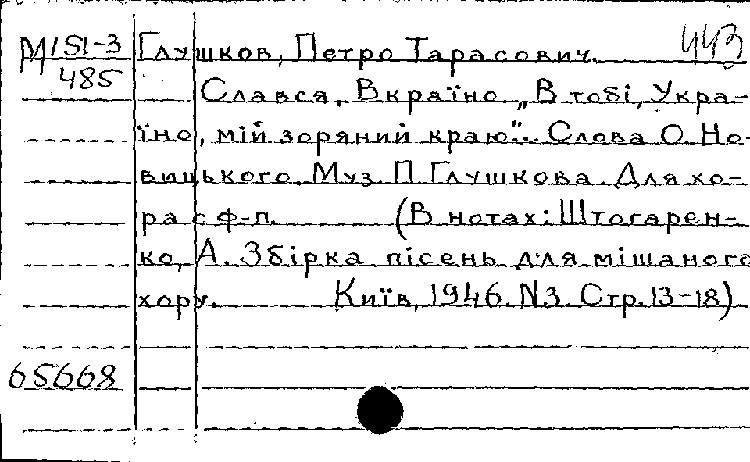 М 151-3 Глушков, Петро Тарасович. 443
485
Слався, Вкраїно „В тобі, Укра-
їно, мій зоряний краю". Слова О. Но-
вицького. Муз. П. Глушкова. Для хо-
ра с ф-п. (В нотах: Штогарен-
ко, А. Збірка пісень для мішаного
хору. Київ, 1946. N3. Стр. 13-18)
65668